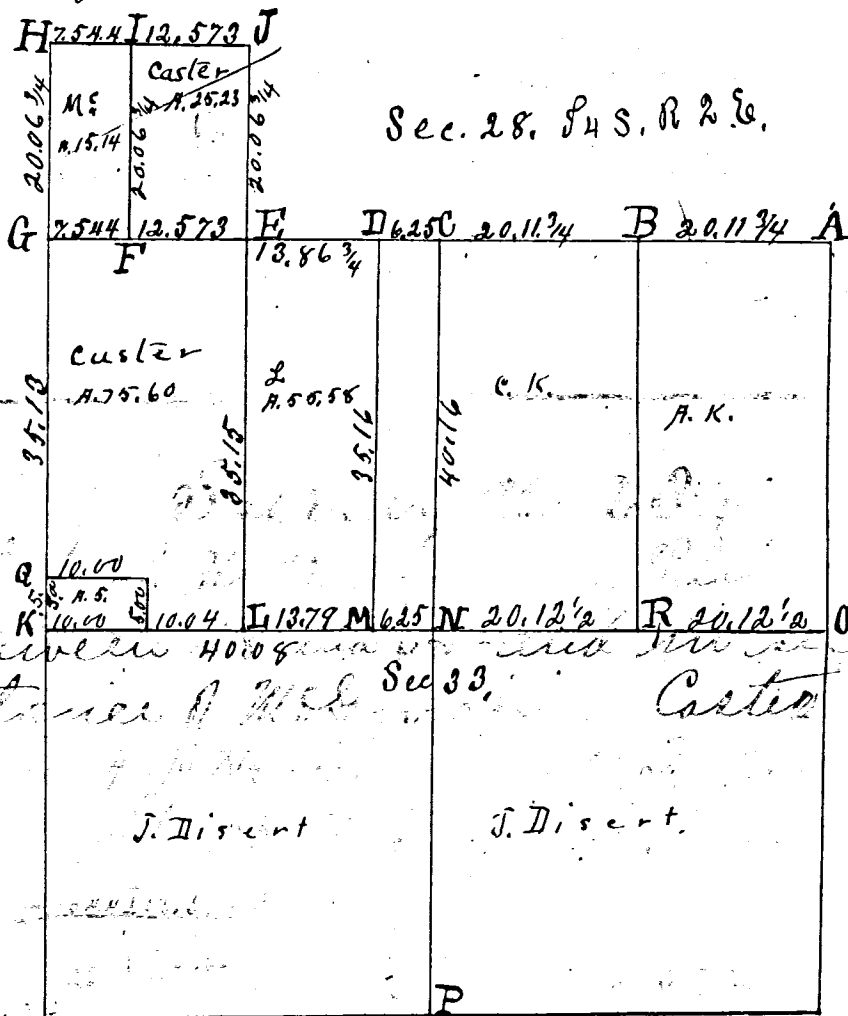 H 7.54.4 I 12.573 J
Caster
A. 25.23
Mc
A. 15.14
20.06 3/4
20.06 3/4
20.06 3/4
Sec. 28. T4 S. R 2 E.
G 7.544 12.573 E D 6.25 C 20.11 3/4 B 20.11 3/4 A
F 13.86 3/4
Custer
A. 75.60
L
A. 55.58
C. K.
A. K.
35.13
35.15
35.16
40.16
Q 10.00
5.00 A. 5. 5.00
K 10.00 10.04 L 13.79 M 6.25 N 20.12 1/2 R 20.12 1/2 O
40.08
Sec 33.
Caster
J. Disert
J. Disert.
P